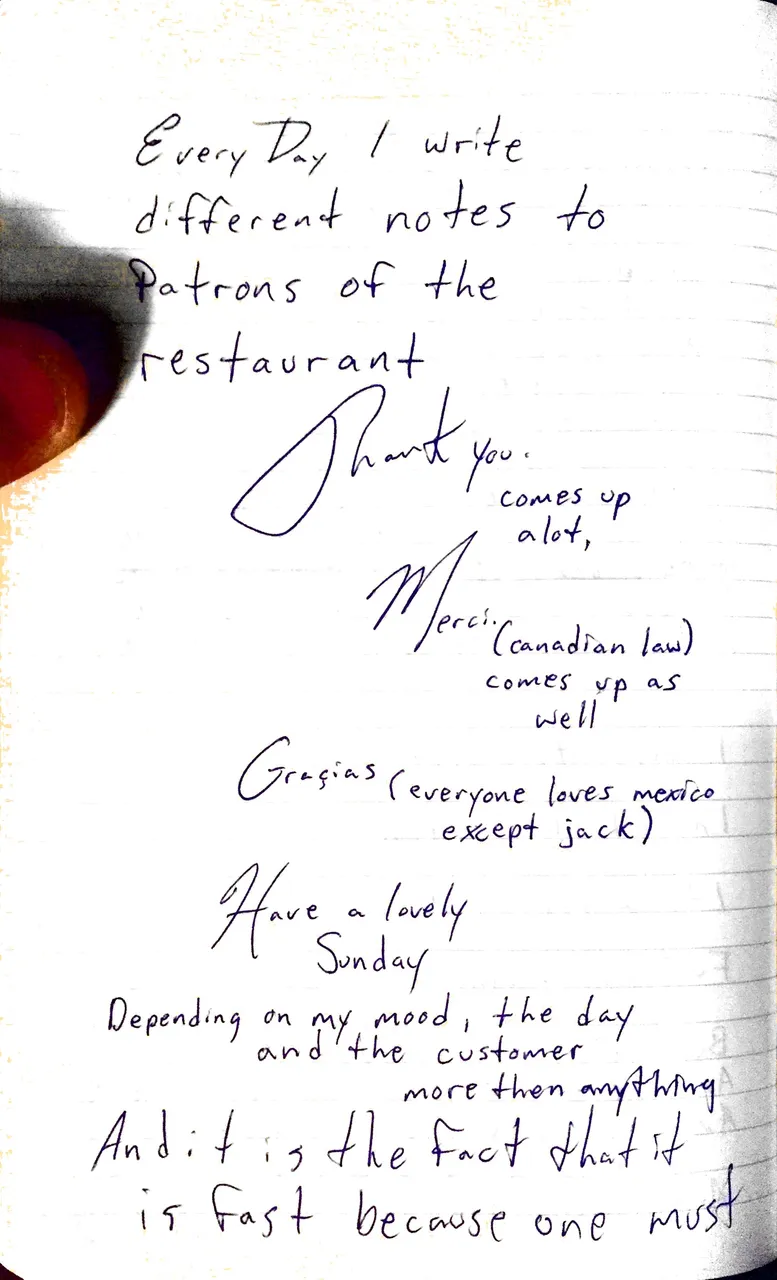 Every Day I write
different notes to
Patrons of the
restaurant
Thank you.
comes up
alot,
Merci.
(canadian law)
comes up as
well
Graçias (everyone loves mexico
except jack)
Have a lovely
Sunday
Depending on my mood, the day
and the customer
more then anything
And it is the fact that it
is fast because one must